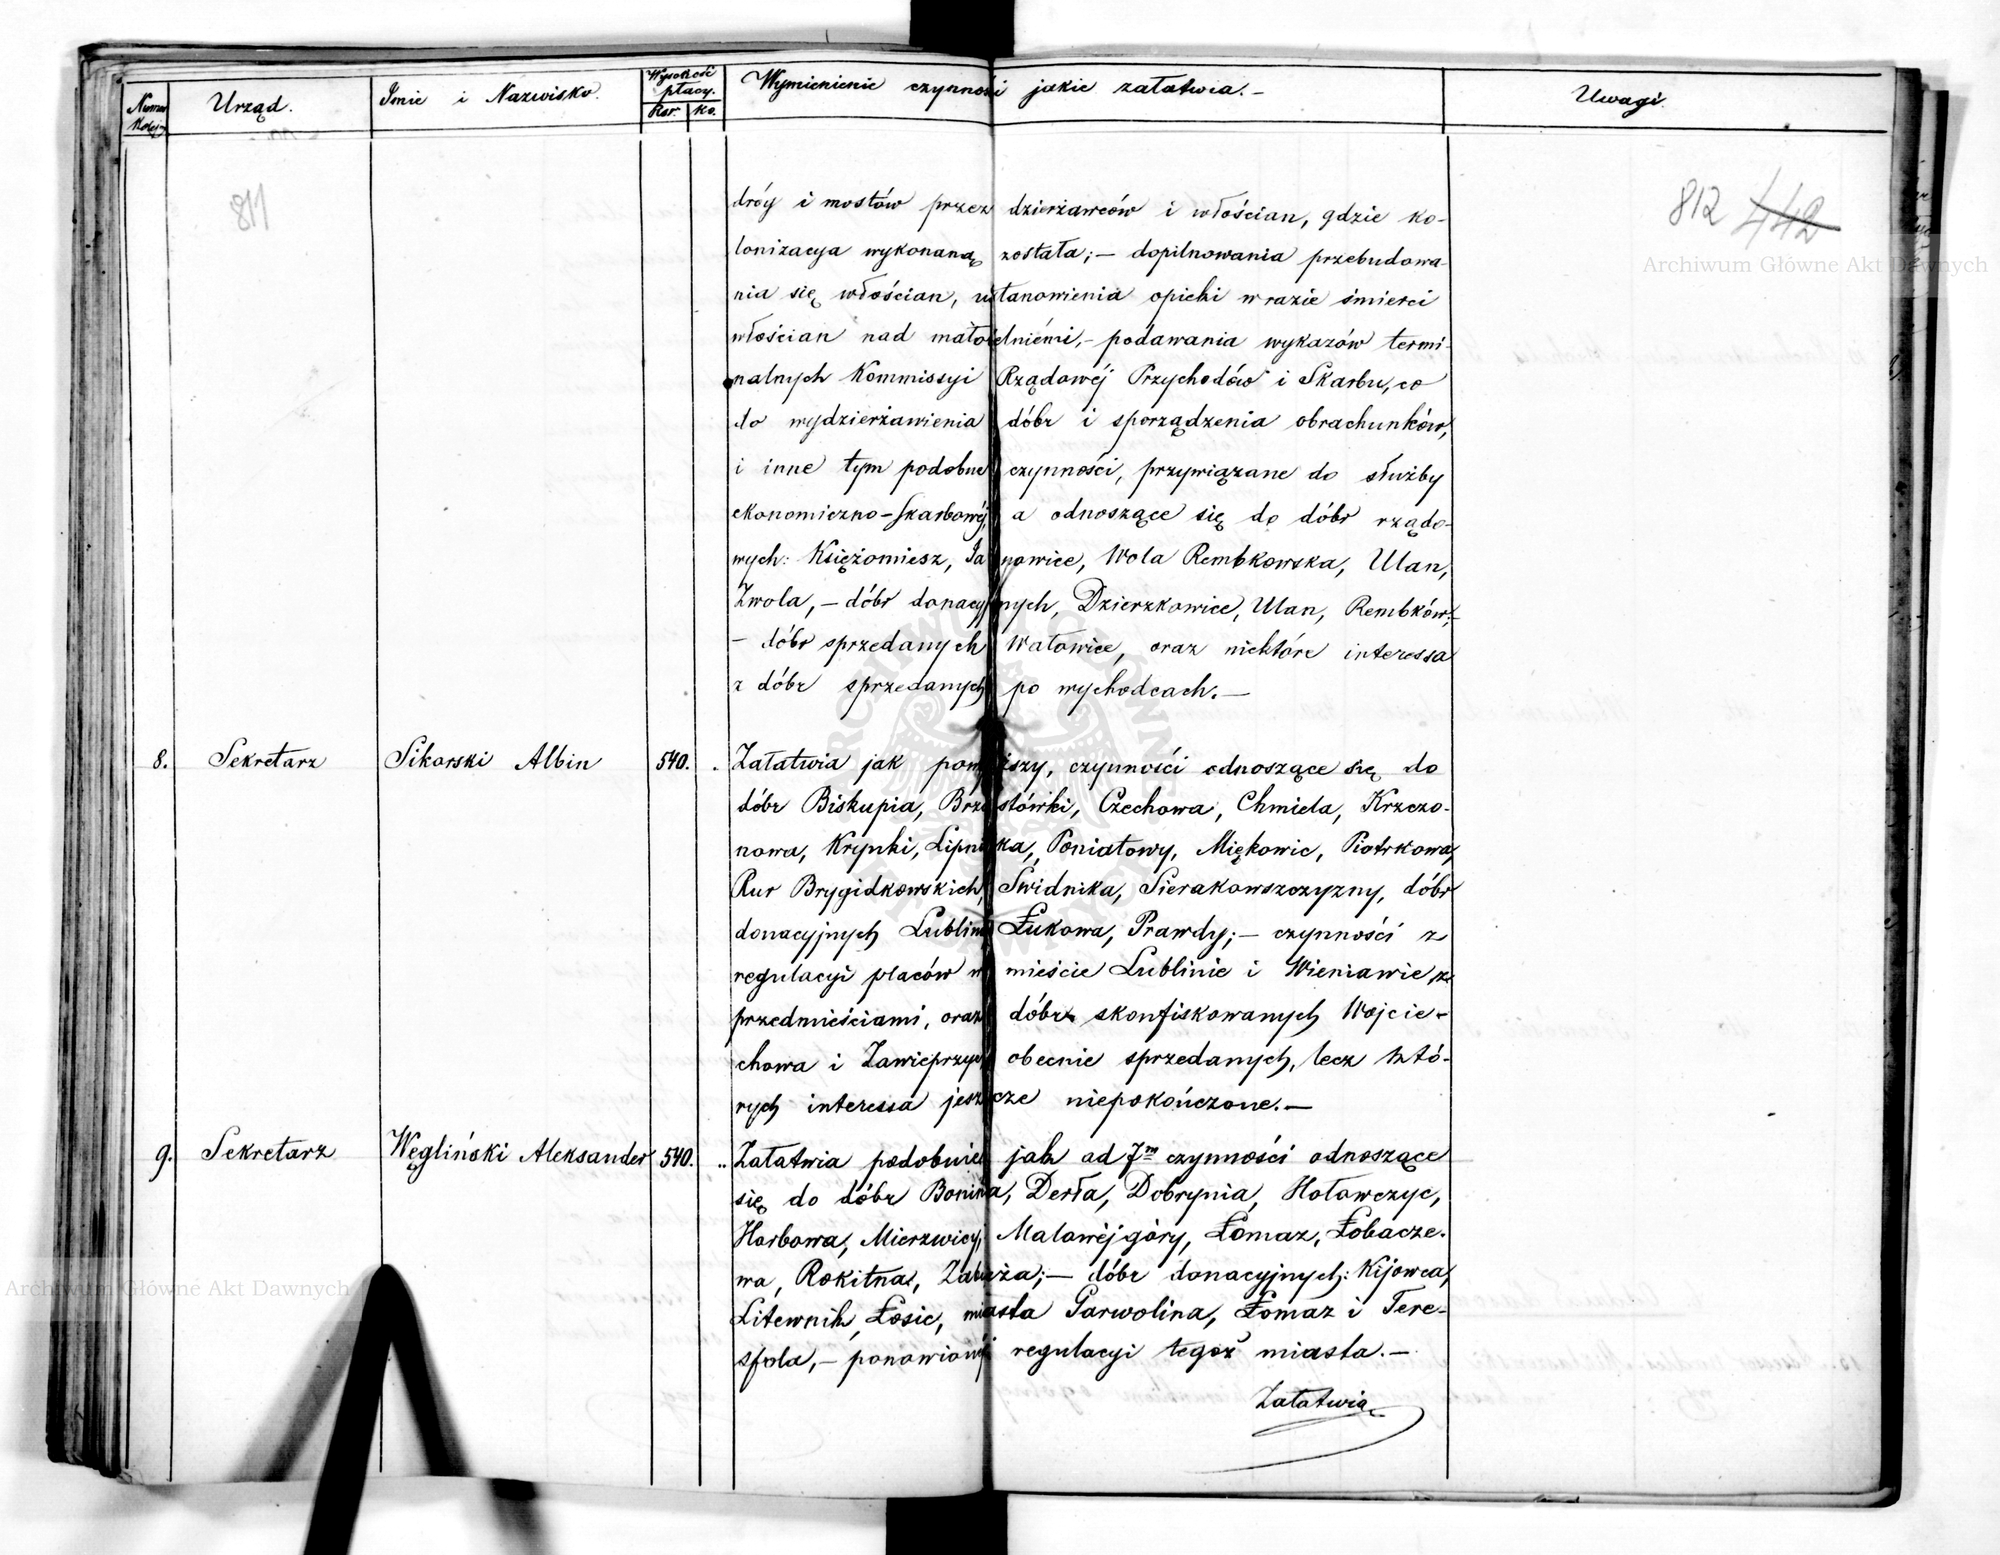 Numer Kolejny
Urząd.
Imie i Nazwisko.
Wysokość płacy.
Rsr. Ko.
Wymienienie czynności jakie załatwia.—
Uwagi.
811
812 442
dróg i mostów przez dzierżawców i włościan, gdzie ko-
lonizacya wykonaną została;— dopilnowania przebudowa-
nia się włościan, ustanowienia opieki w razie śmierci
włościan nad małoletniémi,— podawania wykazów termi-
nalnych Kommissyi Rządowéj Przychodów i Skarbu, co
do wydzierżawienia dóbr i sporządzenia obrachunków,
i inne tym podobne czynności, przywiązane do służby
ekonomiczno-Skarbowéj, a odnoszące się do dóbr rządo-
wych: Księżomiesz, Janowice, Wola Rembkowska, Ulan,
Zwola,— dóbr donacyjnych, Dzierzkowice, Ulan, Rembków;—
— dóbr sprzedanych Wałowice, oraz niektóre interessa
z dóbr sprzedanych po wychodcach.—
8. Sekretarz Sikorski Albin 540. . Załatwia jak powyższy, czynności odnoszące się do
dóbr Biskupia, Brzostówki, Czechowa, Chmiela, Krzczo-
nowa, Krępki, Lipniaka, Poniatowy, Miękowic, Piotrkowa,
Rur Brygidkowskich, Swidnika, Sierakowszczyzny, dóbr
donacyjnych Lublina, Łukowa, Prawdy;— czynności z
regulacyi placów w mieście Lublinie i Wieniawie z
przedmieściami, oraz dóbr skonfiskowanych Wojcie-
chowa i Zawieprzyc, obecnie sprzedanych, lecz któ-
rych interessa jeszcze niepokończone.—
9. Sekretarz Węgliński Aleksander 540. .. Załatwia podobnież jak ad 7m czynności odnoszące
się do dóbr Bonina, Derła, Dobrynia, Hoławczyc,
Horbowa, Mierzwicy, Malowéjgóry, Łomaz, Łobacze-
wa, Rokitna, Zabuża;— dóbr donacyjnych: Kijowca,
Litewnik, Łosic, miasta Garwolina, Łomaz i Tere-
spola,— ponowionéj regulacyi tegoż miasta.—
Załatwia
Archiwum Główne Akt Dawnych
Archiwum Główne Akt Dawnych